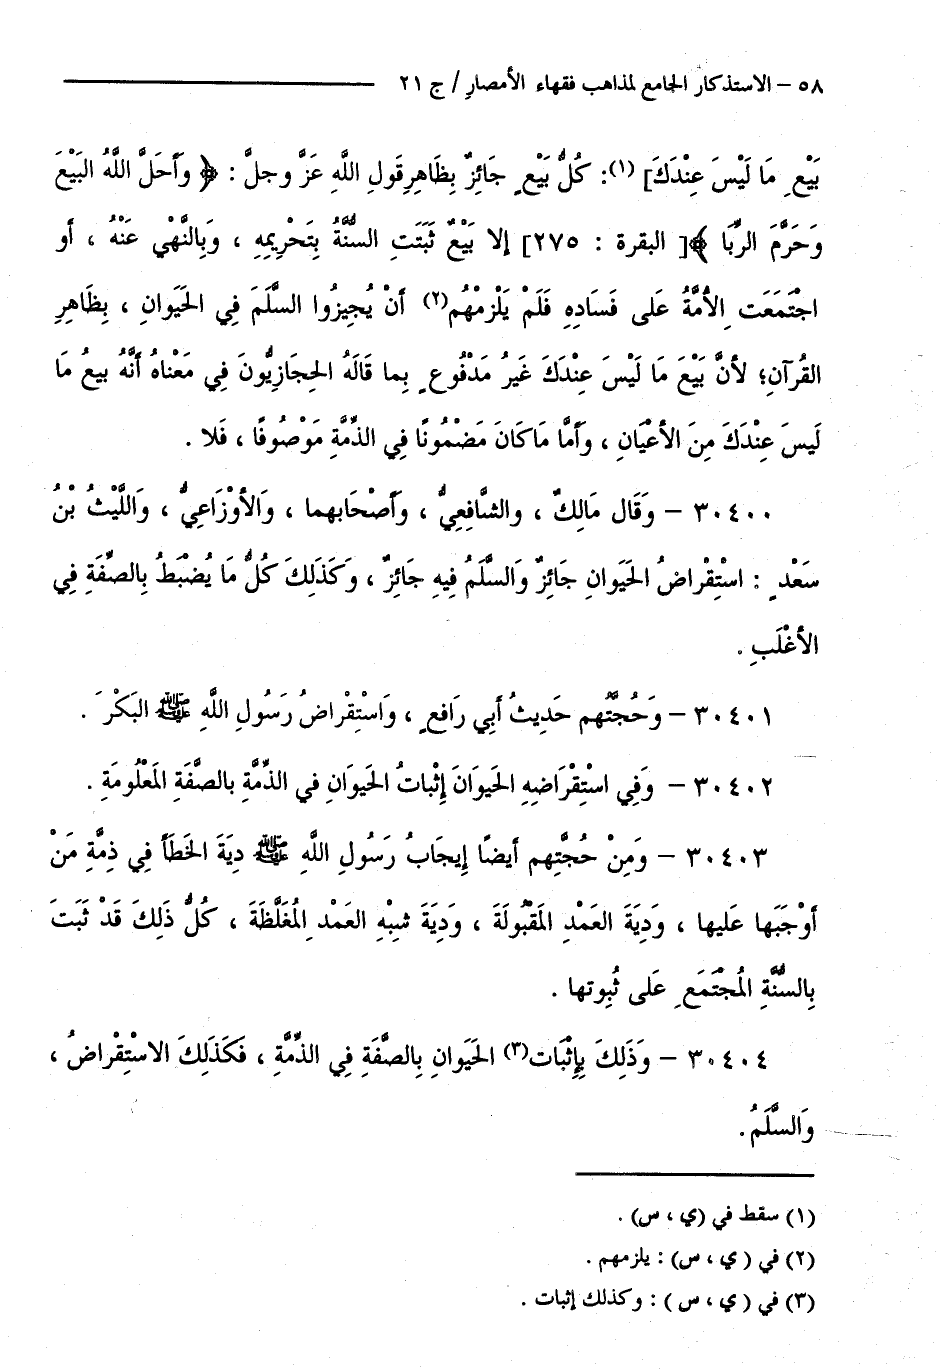 ٥٨ – الاستذكار الجامع لمذاهب فقهاء الأمصار / ج ٢١
بَيْعِ مَا لَيْسَ عِنْدَكَ] (١): كُلُّ بَيْعٍ جَائِزٌ بِظَاهِرِ قَولِ اللَّهِ عَزَّ وجلَّ : ﴿ وَأَحَلَّ اللَّهُ البَيْعَ
وَحَرَّمَ الرِّبَا ﴾[ البقرة : ٢٧٥] إلا بَيْعٌ ثَبَتَتِ السُّنَّةُ بِتَحْرِيمِهِ ، وَبِالنَّهْيِ عَنْهُ ، أو
اجْتَمَعَت ِالأُمَّةُ عَلى فَسَادِهِ فَلَمْ يَلْزَمْهُم(٢) أنْ يُجِيزُوا السَّلَمَ فِي الحَيَوانِ ، بِظَاهِرِ
القُرآنِ؛ لأنَّ بَيْعَ مَا لَيْسَ عِنْدَكَ غَيرُ مَدْفُوعٍ بِما قَالَهُ الحِجَازِيُّونَ فِي مَعْناهُ أنَّهُ بيعُ مَا
لَيسَ عِنْدَكَ مِنَ الأعْيَانِ ، وَأمَّا مَا كَانَ مَضْمُونًا فِي الذِّمَّةِ مَوْصُوفًا ، فَلا .
٣٠٤٠٠ – وَقَال مَالِكٌ ، والشَّافِعِيُّ ، وَأصْحَابهما ، وَالأوْزَاعِيُّ ، وَاللَّيْثُ بْنُ
سَعْدٍ : اسْتِقْراضُ الحَيَوانِ جَائِزٌ وَالسَّلَمُ فِيهِ جَائِزٌ ، وَكَذَلِكَ كُلُّ مَا يُضْبَطُ بِالصِّفَةِ فِي
الأغْلَبِ .
٣٠٤٠١ – وَحُجَّتُهم حَدِيثُ أبي رَافعٍ ، وَاسْتِقْراضُ رَسُولِ اللَّهِ ﷺ البَكْرَ .
٣٠٤٠٢ – وَفِي اسْتِقْرَاضِهِ الحَيَوانَ إثْباتُ الحَيَوانِ في الذِّمَّةِ بالصِّفَةِ المَعْلُومَةِ .
٣٠٤٠٣ – وَمِنْ حُجَّتِهم أيضًا إيجَابُ رَسُولِ اللَّهِ ﷺ دِيَةَ الخَطَأ فِي ذِمَّةِ مَنْ
أوْجَبَها عَليها ، وَدِيَةَ العَمْدِ المَقْبُولَةَ ، وَدِيَةَ شبْهِ العَمْدِ المُغَلَّظَةَ ، كُلُّ ذَلِكَ قَدْ ثَبَتَ
بِالسُّنَّةِ المُجْتَمَعِ عَلى ثُبوتها .
٣٠٤٠٤ – وَذَلِكَ بِإثْبَات(٣) الحَيَوانِ بِالصِّفَةِ فِي الذِّمَّةِ ، فَكَذَلِكَ الاسْتِقْراضُ ،
وَالسَّلَمُ.
(١) سقط في (ي ، س) .
(٢) في ( ي ، س) : يلزمهم .
(٣) في ( ي ، س ) : وكذلك إثبات .